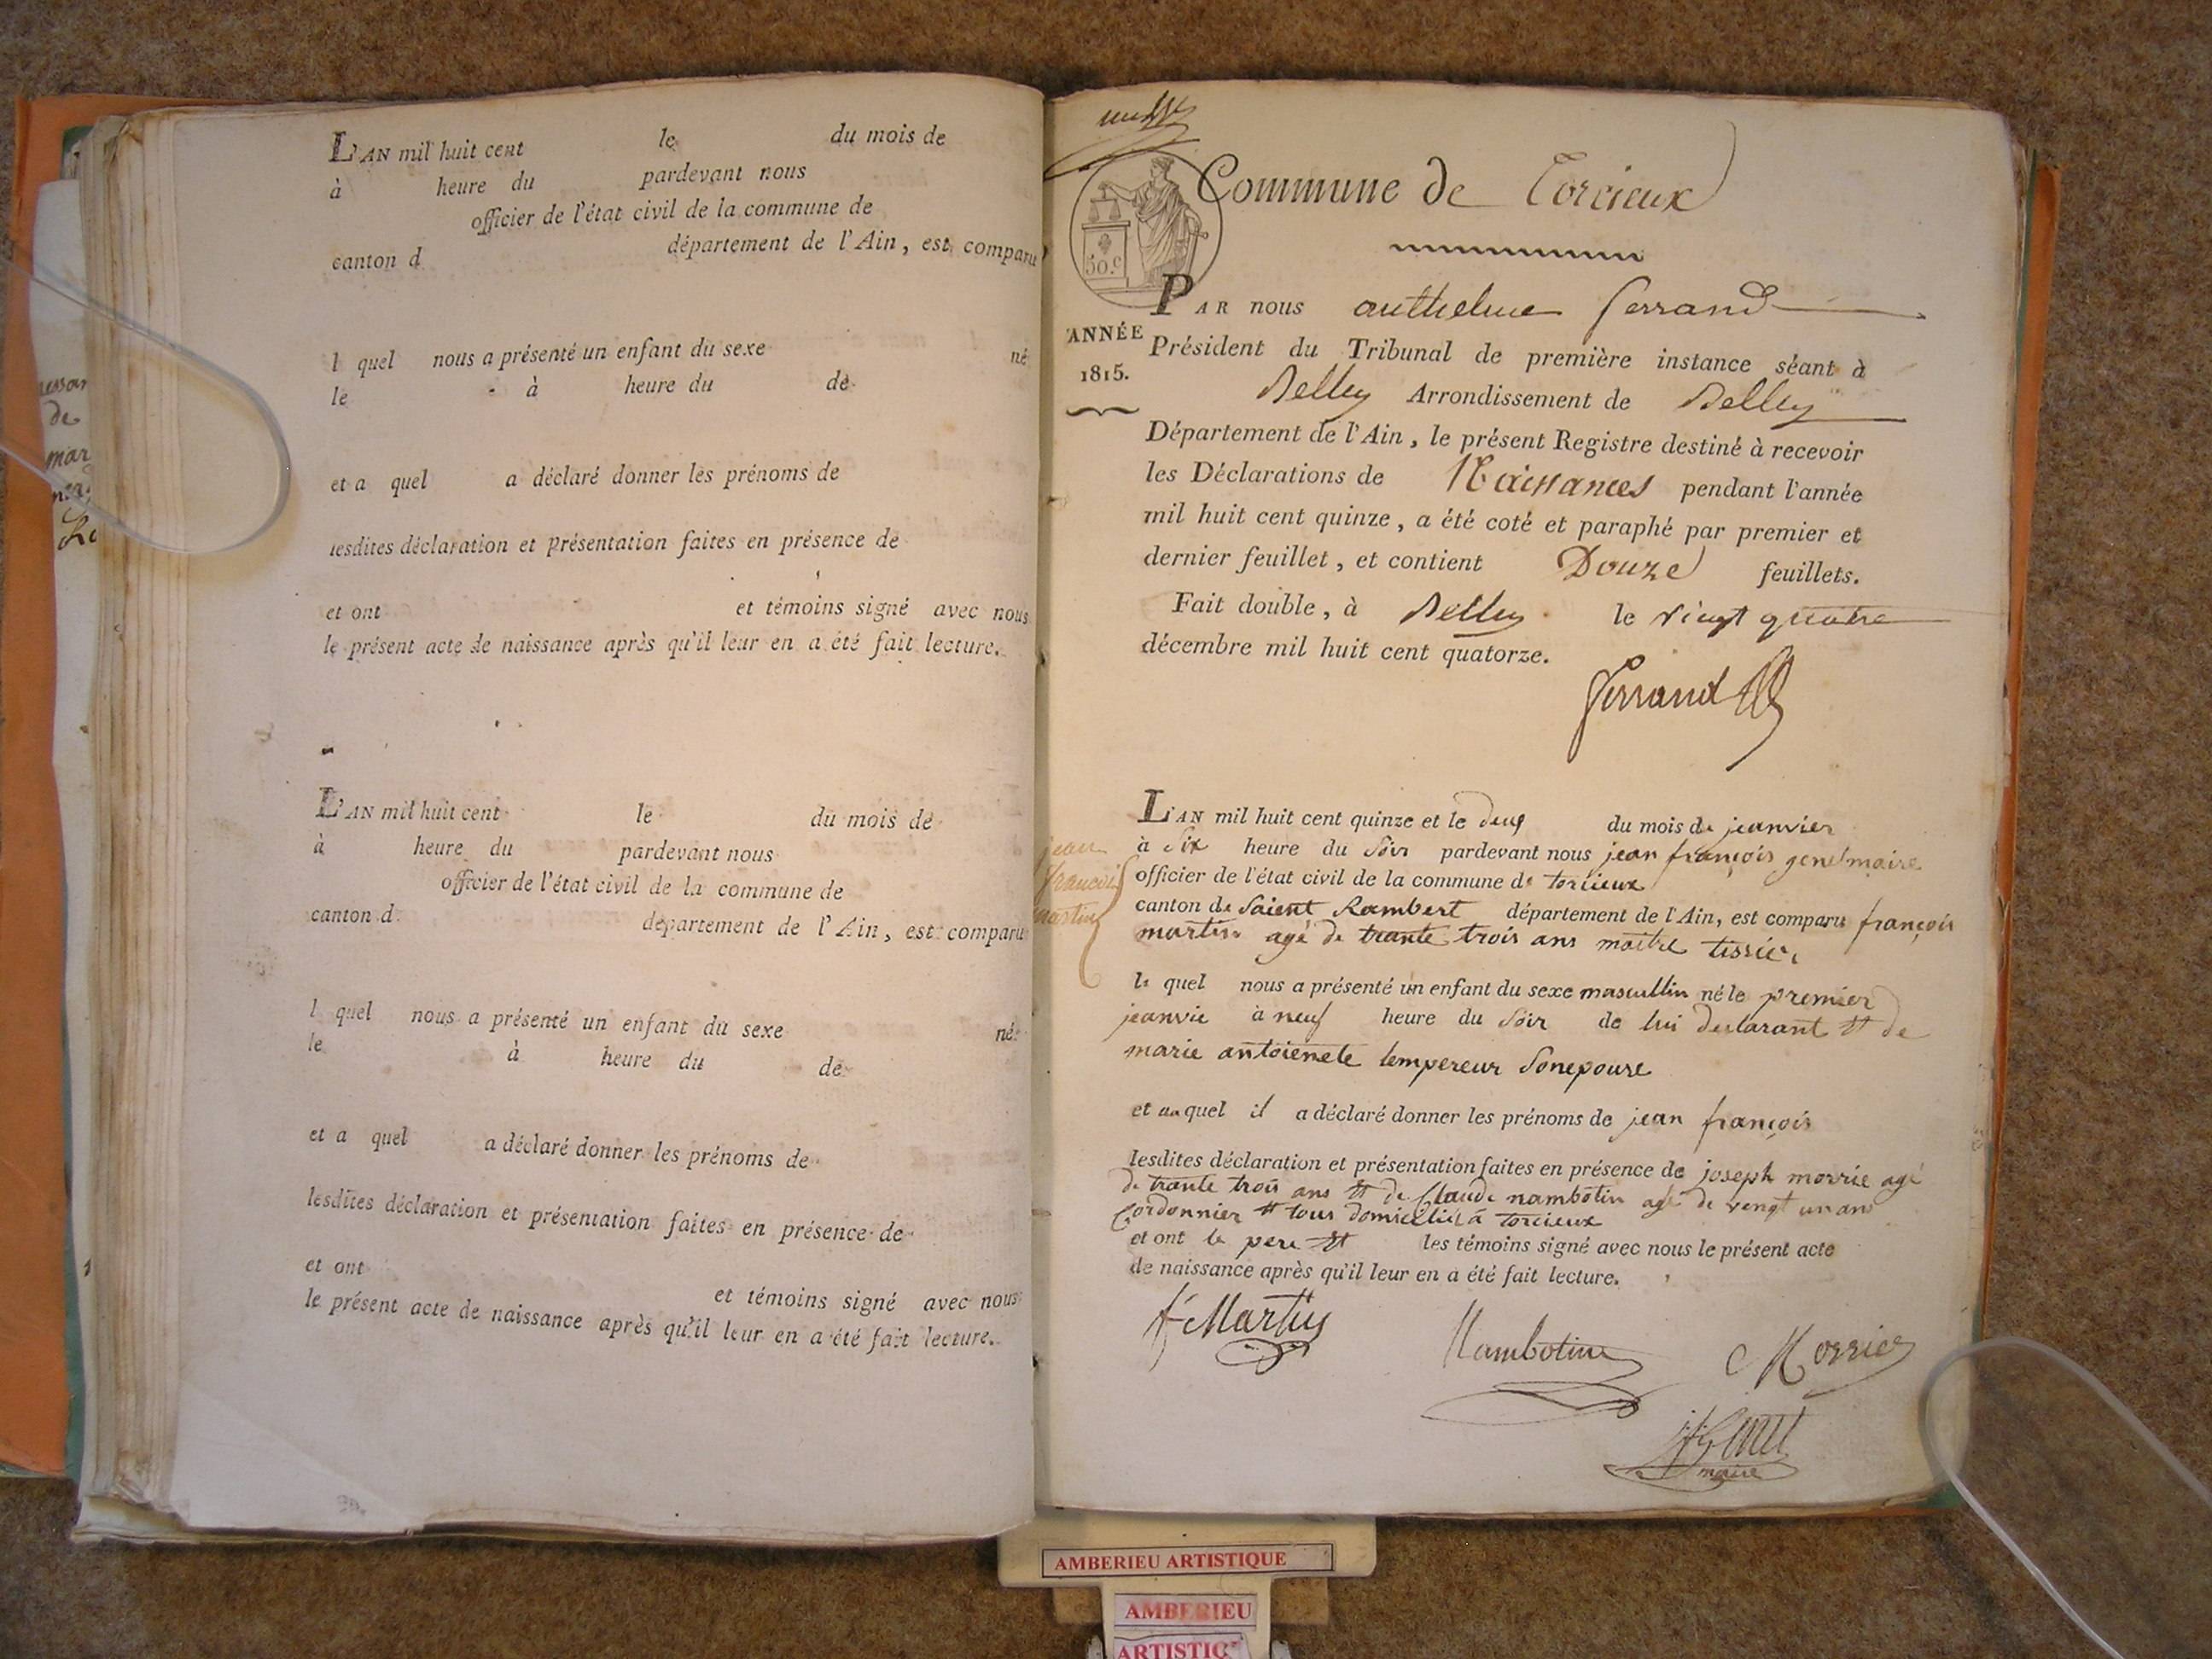 L'AN mil huit cent le du mois de
à heure du pardevant nous
officier de l'état civil de la commune de
canton d département de l'Ain, est comparu
l quel nous a présenté un enfant du sexe né
le à heure du de
et a quel a déclaré donner les prénoms de
lesdites déclaration et présentation faites en présence de
et ont et témoins signé avec nous
le présent acte de naissance après qu'il leur en a été fait lecture.
L'AN mil huit cent le du mois de
à heure du pardevant nous
officier de l'état civil de la commune de
canton d département de l'Ain, est comparu
l quel nous a présenté un enfant du sexe né
le à heure du de
et a quel a déclaré donner les prénoms de
lesdites déclaration et présentation faites en présence de
et ont et témoins signé avec nous
le présent acte de naissance après qu'il leur en a été fait lecture.
de
mar
Commune de Torcieux
50.c
PAR nous anthelme ferrand
ANNÉE
1815.
Président du Tribunal de première instance séant à
Belley Arrondissement de Belley
Département de l'Ain, le présent Registre destiné à recevoir
les Déclarations de Naissances pendant l'année
mil huit cent quinze, a été coté et paraphé par premier et
dernier feuillet, et contient Douze feuillets.
Fait double, à Belley le vingt quatre
décembre mil huit cent quatorze.
Ferrand
jean
francois
martin
L'AN mil huit cent quinze et le deux du mois de jeanvier
à six heure du soir pardevant nous jean françois genet maire
officier de l'état civil de la commune de torcieux
canton de saient Rambert département de l'Ain, est comparu françois
martin agé de trante trois ans maitre tissier
le quel nous a présenté un enfant du sexe mascullin né le premier
jeanvie à neuf heure du soir de lui declarant et de
marie antoienete lempereur sonepouse
et au quel il a déclaré donner les prénoms de jean françois
lesdites déclaration et présentation faites en présence de joseph morrie agé
de trante trois ans et de Claude nambotin agé de vengt un ans
Cordonnier et tous domiciliés à torcieux
et ont le pere et les témoins signé avec nous le présent acte
de naissance après qu'il leur en a été fait lecture.
f Martin
Nambotin
Morrier
jf Genet
maire
AMBERIEU ARTISTIQUE
AMBERIEU
ARTISTIQ